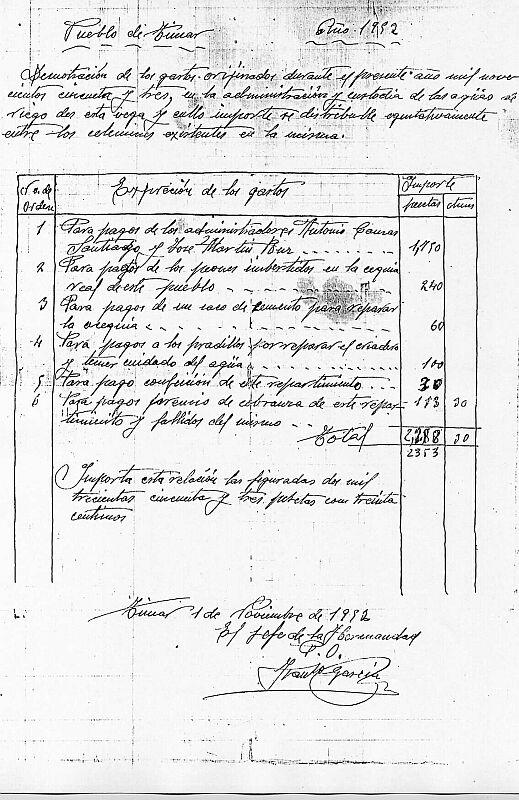 Pueblo de Timar Año 1952
Demostración de los gastos originados durante el presente ano mil nove
cientos cincuenta y tres, en la administración y custodia de las agüas de
riego des esta vega y cullo importe se distribulle equitativamente
entre los celemines existentes en la misma.
No. de Orden Expreción de los gastos Importe
pesetas ctmos
1 Para pagos de los administradores Antonio
Santiago y José Martin Rur 1,850
2 Para pagos de los peones imbertidos en la cequia
real de este pueblo 240
3 Para pagos de un saco de cemento para reparar
la acequia 60
4 Para pagos a los pradillos por reparar el criadero
y tener cuidado del agüa 100
5 Para pago confeición de este repartimiento 30
6 Para pagos porencio de cobranza de este repar 173 30
timiento y fallidos del mismo
Total 2,288 30
2353
Importa esta relación las figuradas dos mil
trecientas cincuenta y tres pesetas con treinta
centimos
Timar 1 de Noviembre de 1952
El Jefe de la Hermandad
P.O.
García